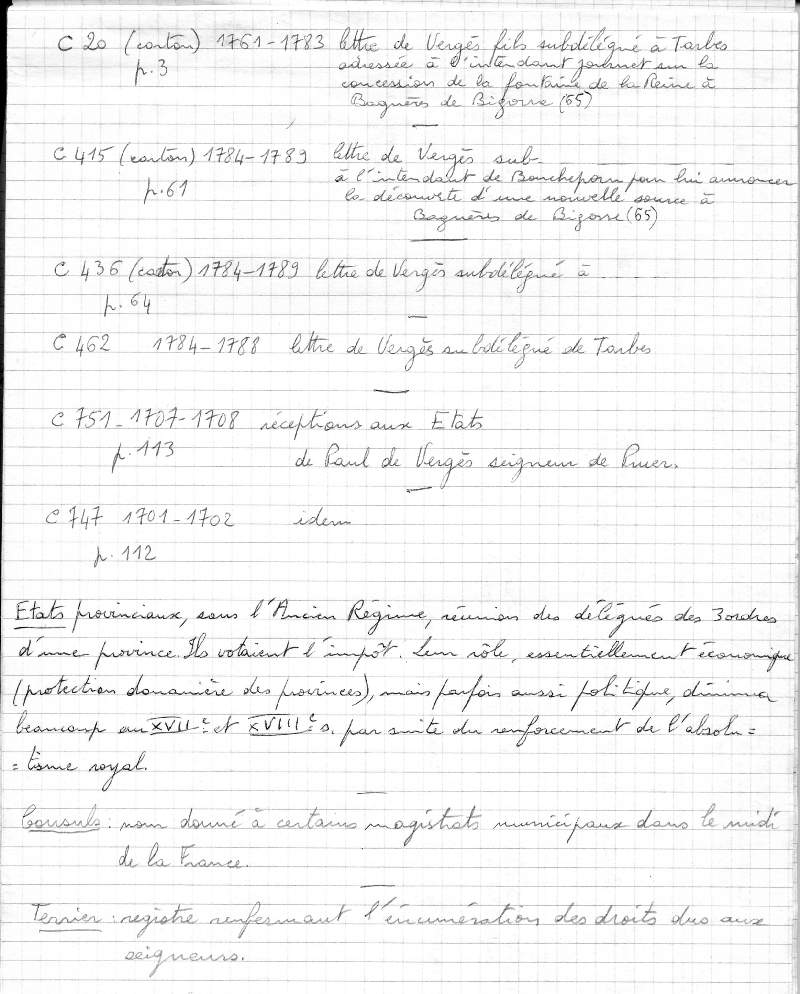 C 20 (carton) 1761-1783 lettre de Vergès fils subdélégué à Tarbes
p.3 adressée à l'intendant Journet sur la
concession de la fontaine de la Reine à
Bagnères de Bigorre (65)
C 415 (carton) 1784-1789 lettre de Vergès sub-
à l'intendant de Boucheporn pour lui annoncer
p.61 la découverte d'une nouvelle source à
Bagnères de Bigorre (65)
C 436 (carton) 1784-1789 lettre de Vergès subdélégué à
p.64
C 462 1784-1788 lettre de Vergès subdélégué de Tarbes
C 751 - 1707-1708 réceptions aux Etats
p.113 de Paul de Vergès seigneur de
C 747 1701-1702 idem
p.112
Etats provinciaux, sous l'Ancien Régime, réunion des délégués des 3 ordres
d'une province. Ils votaient l'impôt. Leur rôle, essentiellement économique
(protection douanière des provinces), mais parfois aussi politique, diminua
beaucoup au XVIIe et XVIIIe s. par suite du renforcement de l'absolu=
=tisme royal.
Consuls : nom donné à certains magistrats municipaux dans le midi
de la France.
Terrier : registre renfermant l'énumération des droits dus aux
seigneurs.